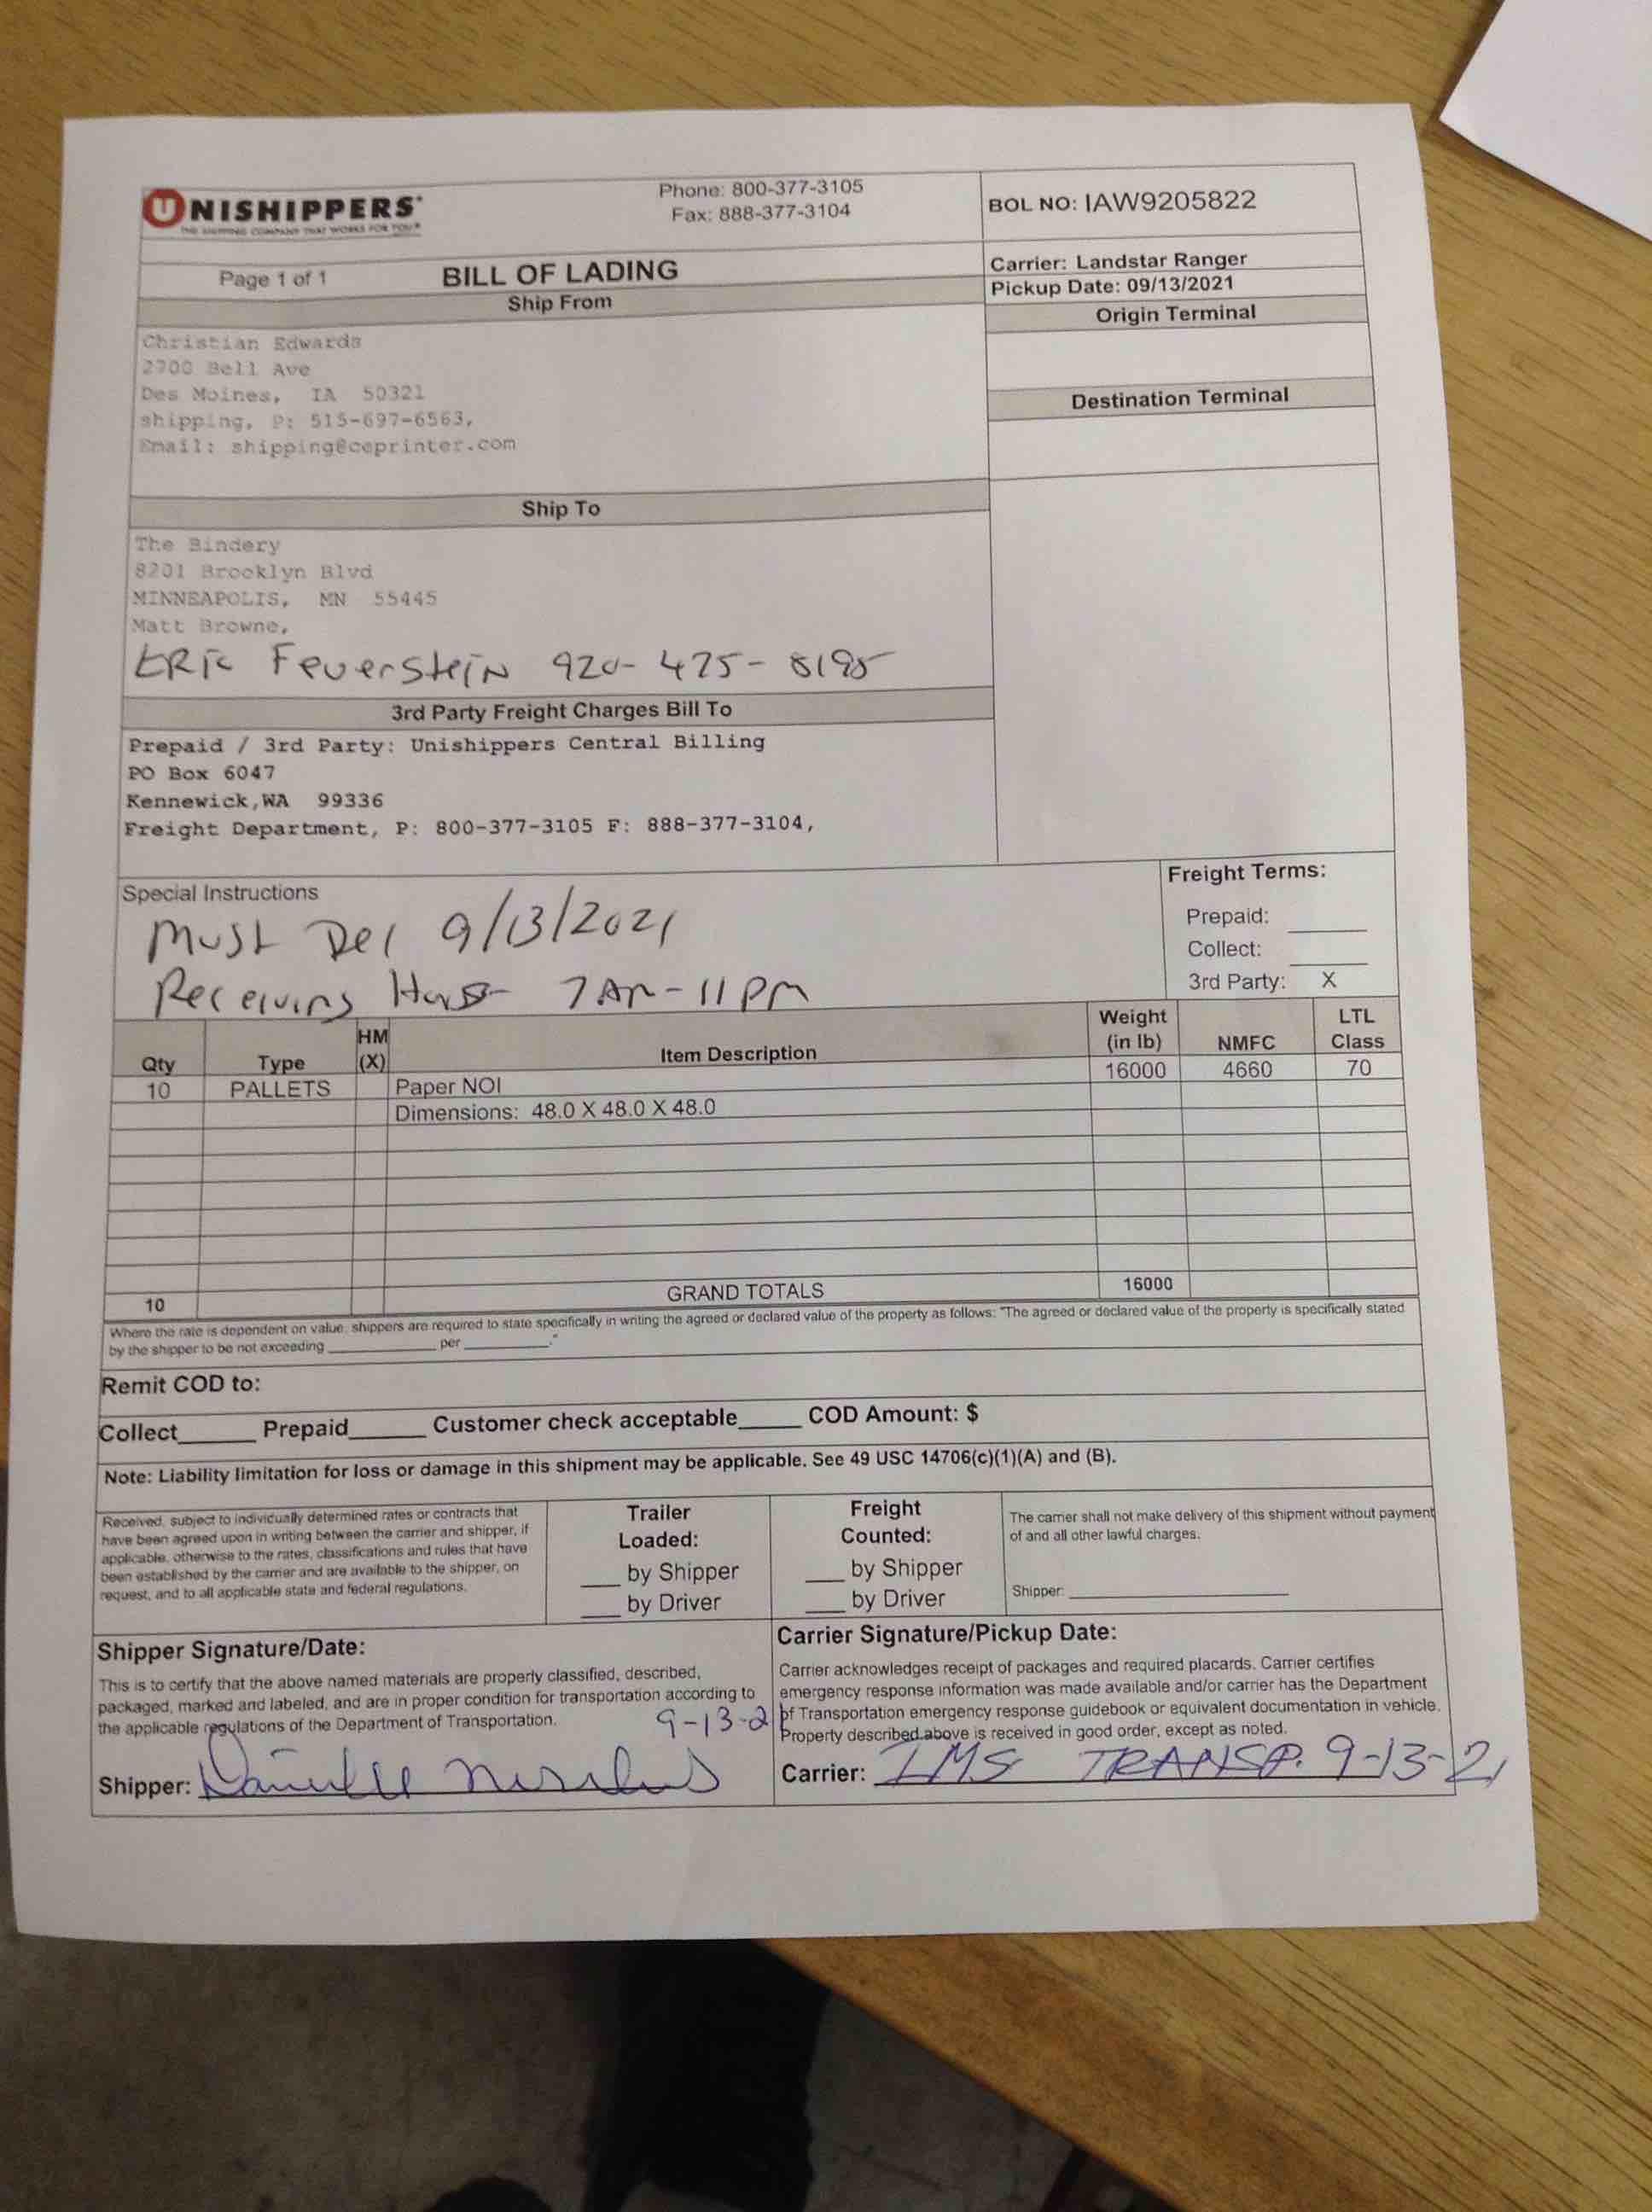 UNISHIPPERS
THE SHIPPING COMPANY THAT WORKS FOR YOU®
Phone: 800-377-3105
Fax: 888-377-3104
BOL NO: IAW9205822
Page 1 of 1
BILL OF LADING
Carrier: Landstar Ranger
Pickup Date: 09/13/2021
Ship From
Origin Terminal
Christian Edwards
2700 Bell Ave
Des Moines, IA 50321
shipping, P: 515-697-6563,
Email: shipping@ceprinter.com
Destination Terminal
Ship To
The Bindery
8201 Brooklyn Blvd
MINNEAPOLIS, MN 55445
Matt Browne,
ERIC Feuerstein 920-475-8195
3rd Party Freight Charges Bill To
Prepaid / 3rd Party: Unishippers Central Billing
PO Box 6047
Kennewick,WA 99336
Freight Department, P: 800-377-3105 F: 888-377-3104,
Special Instructions
Must Del 9/13/2021
Receiving 7 AM - 11 PM
Freight Terms:
Prepaid:
Collect:
3rd Party: X
Qty Type HM (X) Item Description Weight (in lb) NMFC LTL Class
10 PALLETS Paper NOI 16000 4660 70
Dimensions: 48.0 X 48.0 X 48.0
10 GRAND TOTALS 16000
Where the rate is dependent on value, shippers are required to state specifically in writing the agreed or declared value of the property as follows: "The agreed or declared value of the property is specifically stated
by the shipper to be not exceeding ____________ per __________."
Remit COD to:
Collect______ Prepaid______ Customer check acceptable_____ COD Amount: $
Note: Liability limitation for loss or damage in this shipment may be applicable. See 49 USC 14706(c)(1)(A) and (B).
Received, subject to individually determined rates or contracts that
have been agreed upon in writing between the carrier and shipper, if
applicable, otherwise to the rates, classifications and rules that have
been established by the carrier and are available to the shipper, on
request, and to all applicable state and federal regulations.
Trailer
Loaded:
___ by Shipper
___ by Driver
Freight
Counted:
___ by Shipper
___ by Driver
The carrier shall not make delivery of this shipment without payment
of and all other lawful charges.
Shipper: ____________________
Shipper Signature/Date:
This is to certify that the above named materials are properly classified, described,
packaged, marked and labeled, and are in proper condition for transportation according to
the applicable regulations of the Department of Transportation.
9-13-21
Shipper:
Carrier Signature/Pickup Date:
Carrier acknowledges receipt of packages and required placards. Carrier certifies
emergency response information was made available and/or carrier has the Department
of Transportation emergency response guidebook or equivalent documentation in vehicle.
Property described above is received in good order, except as noted.
Carrier: IMS TRANSP. 9-13-21